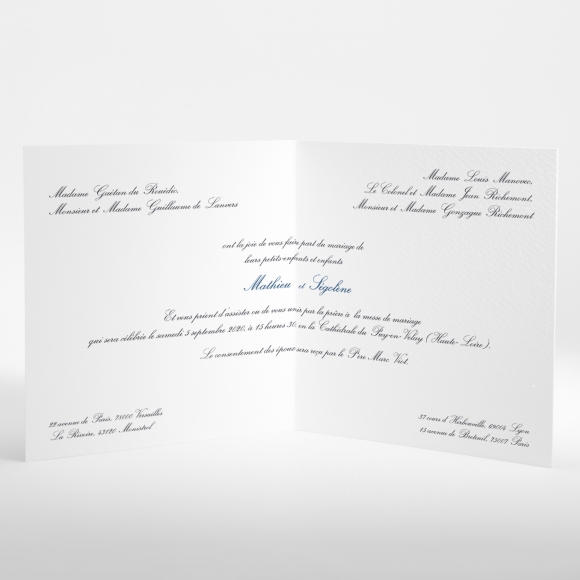 Madame Guëtan du Rouëdic,
Monsieur et Madame Guillaume de Lanvers
Madame Louis Manovec,
Le Colonel et Madame Jean Richemont,
Monsieur et Madame Gonzague Richemont
ont la joie de vous faire part du mariage de
leurs petits-enfants et enfants
Mathieu et Ségolène
Et vous prient d'assister ou de vous unir par la prière à la messe de mariage
qui sera célébrée le samedi 5 septembre 2020, à 15 heures 30, en la Cathédrale du Puy-en-Velay (Haute-Loire).
Le consentement des époux sera reçu par le Père Marc Viot.
22 avenue de Paris, 78000 Versailles
La Rivoire, 43120 Monistrol
37 cours d'Herbouville, 69004 Lyon
15 avenue de Breteuil, 75007 Paris